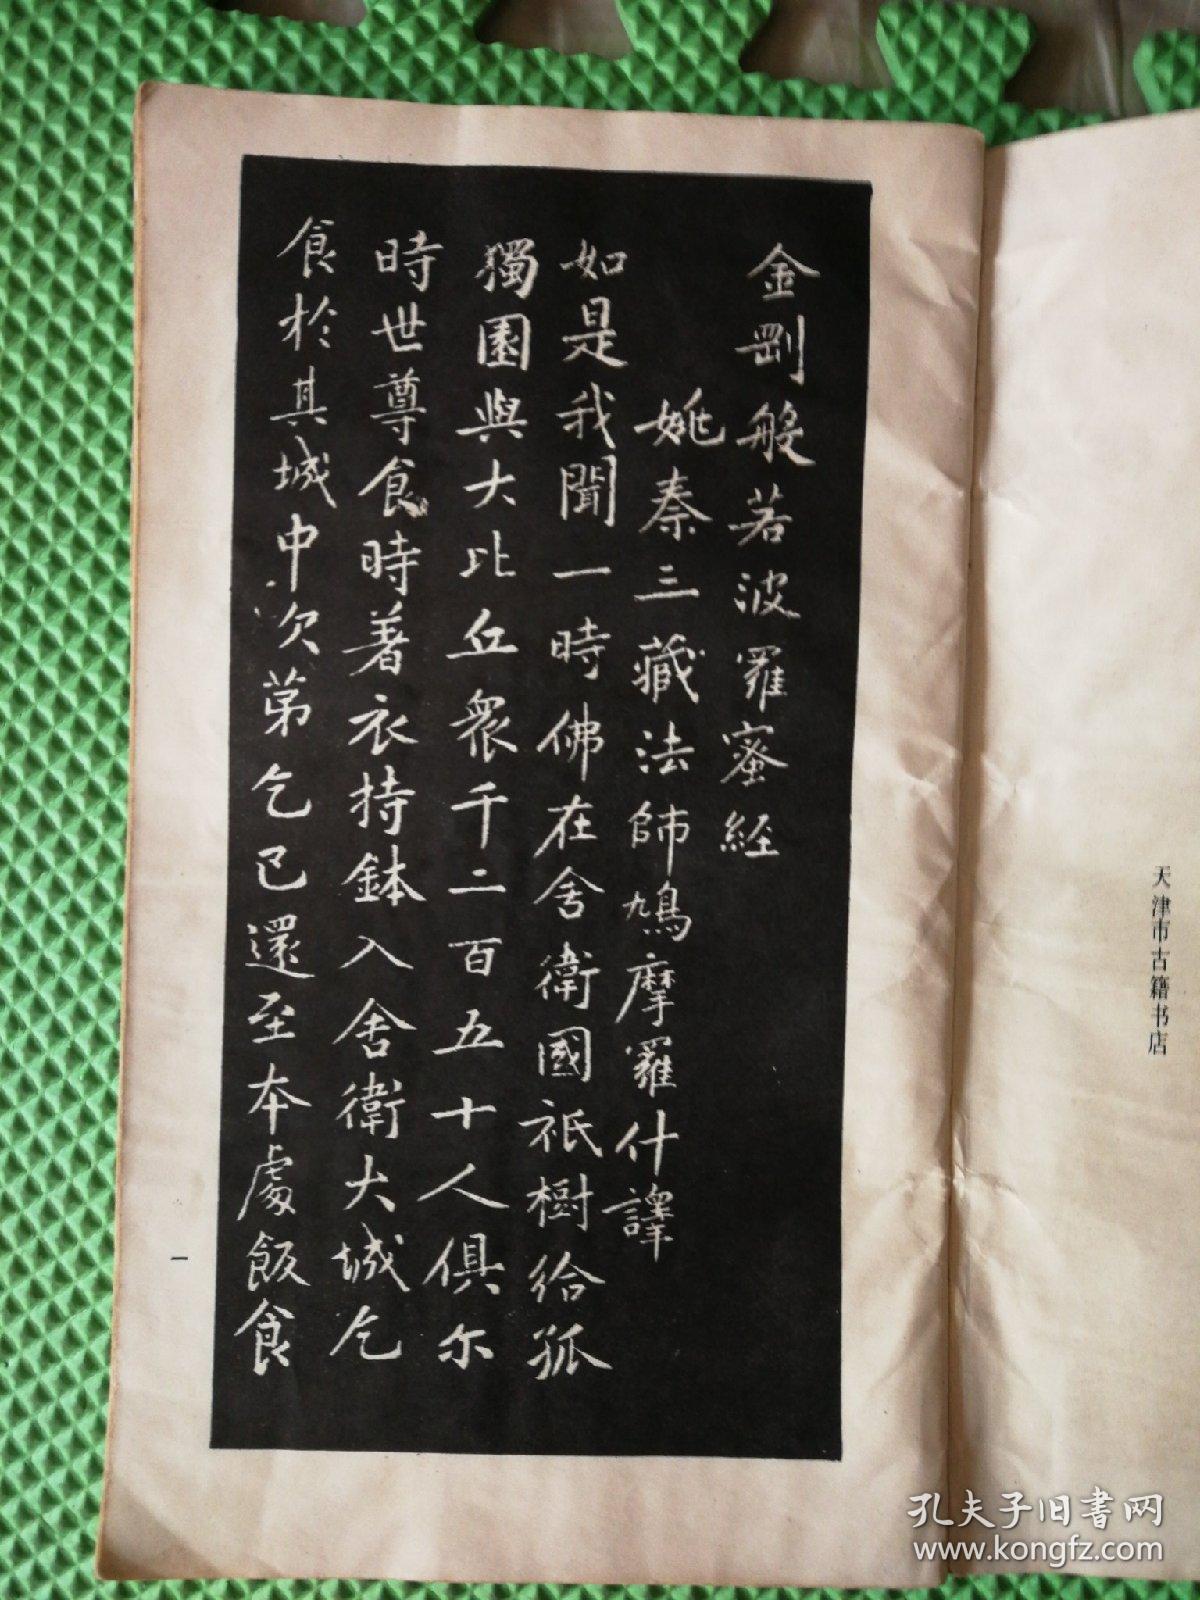 金剛般若波羅蜜經
姚秦三藏法師鳩摩羅什譯
如是我聞一時佛在舍衛國祇樹給孤
獨園與大比丘眾千二百五十人俱尔
時世尊食時著衣持鉢入舍衛大城乞
食於其城中次第乞已還至本處飯食
一
天津市古籍书店
孔夫子旧书网
www.kongfz.com